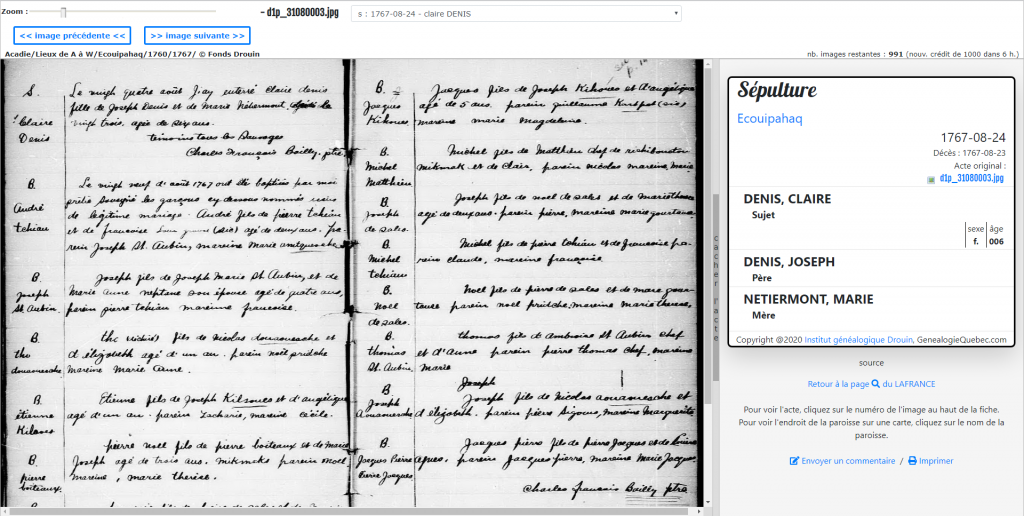 Zoom :
~ d1p_31080003.jpg
s : 1767-08-24 - claire DENIS
<< image précédente <<
>> image suivante >>
Acadie/Lieux de A à W/Ecouipahaq/1760/1767/ © Fonds Drouin
nb. images restantes : 991 (nouv. crédit de 1000 dans 6 h.)
S.
Claire
Denis
Le vingt quatre août J'ay enterré Claire denis
fille de Joseph Denis et de Marie
vingt trois, agée de six ans.
temoins tous les Sauvages
Charles François Bailly, ptre
B.
André
tchian
Le vingt neuf d'août 1767 ont été baptisés par moi
prêtre soussigné les garçons cy dessous nommés
de légitime mariage. André fils de pierre tchian
et de francoise (sic) agé de deux ans. pa-
rein Joseph St. Aubin, mareine Marie
B.
Joseph
St. Aubin.
Joseph fils de Joseph Marie St. Aubin, et de
Marie Anne neptune son épouse agé de quatre ans,
parein pierre tchian mareinne francoise.
B.
tho
douanesache
tho fils de Nicolas
d'elizabeth agé d'un an. parein noel
Mareine Marie Anne.
B.
étienne
Kilsoues
Etienne fils de Joseph Kilsoues et d'angelique
agé d'un an. parein Zacharie, mareine cécile.
B.
pierre
boiteaux.
pierre noel fils de pierre boiteaux et de Marie
Joseph agé de trois ans. mikmaks parein noel
Mareine, marie therèse.
B.
Jacques
Kihoues
Jacques fils de Joseph Kihoues et d'angelique
agé de 5 ans. parein guillaume (sic)
mareine marie Magdeleine.
B.
Michel
Matthieu
Michel fils de Matthieu chef de
mikmak et de Clair, parein nicolas mareine Marie
B.
Joseph
de sales.
Joseph fils de noel de sales et de
agé de deux ans. parein pierre, mareine marie
B.
Michel
tchian
Michel fils de pierre tchian et de francoise pa-
rein claude, mareine françoise
B.
Noel
de sales.
Noel fils de pierre de sales et de marie
parein noel mareine Marie therese,
B.
thomas
St. Aubin.
thomas fils d'Ambroise St Aubin chef
et d'Anne parein pierre thomas chef. mareine
Marie
B.
Joseph
Joseph
Joseph fils de Nicolas
et d'elizabeth. parein pierre bijous, mareine Marguerite
B.
Jacques Pierre
Pierre Jacques.
Jacques pierre fils de pierre Jacques et de
agnes. parein Jacques pierre, mareine Marie Jacques
Charles francois Bailly ptre
cacher l'acte
Sépulture
Ecouipahaq
1767-08-24
Décès : 1767-08-23
Acte original :
d1p_31080003.jpg
DENIS, CLAIRE
Sujet
sexe âge
f. 006
DENIS, JOSEPH
Père
NETIERMONT, MARIE
Mère
Copyright @2020 Institut généalogique Drouin, GenealogieQuebec.com
source
Retour à la page du LAFRANCE
Pour voir l'acte, cliquez sur le numéro de l'image au haut de la fiche.
Pour voir l'endroit de la paroisse sur une carte, cliquez sur le nom de la
paroisse.
Envoyer un commentaire / Imprimer